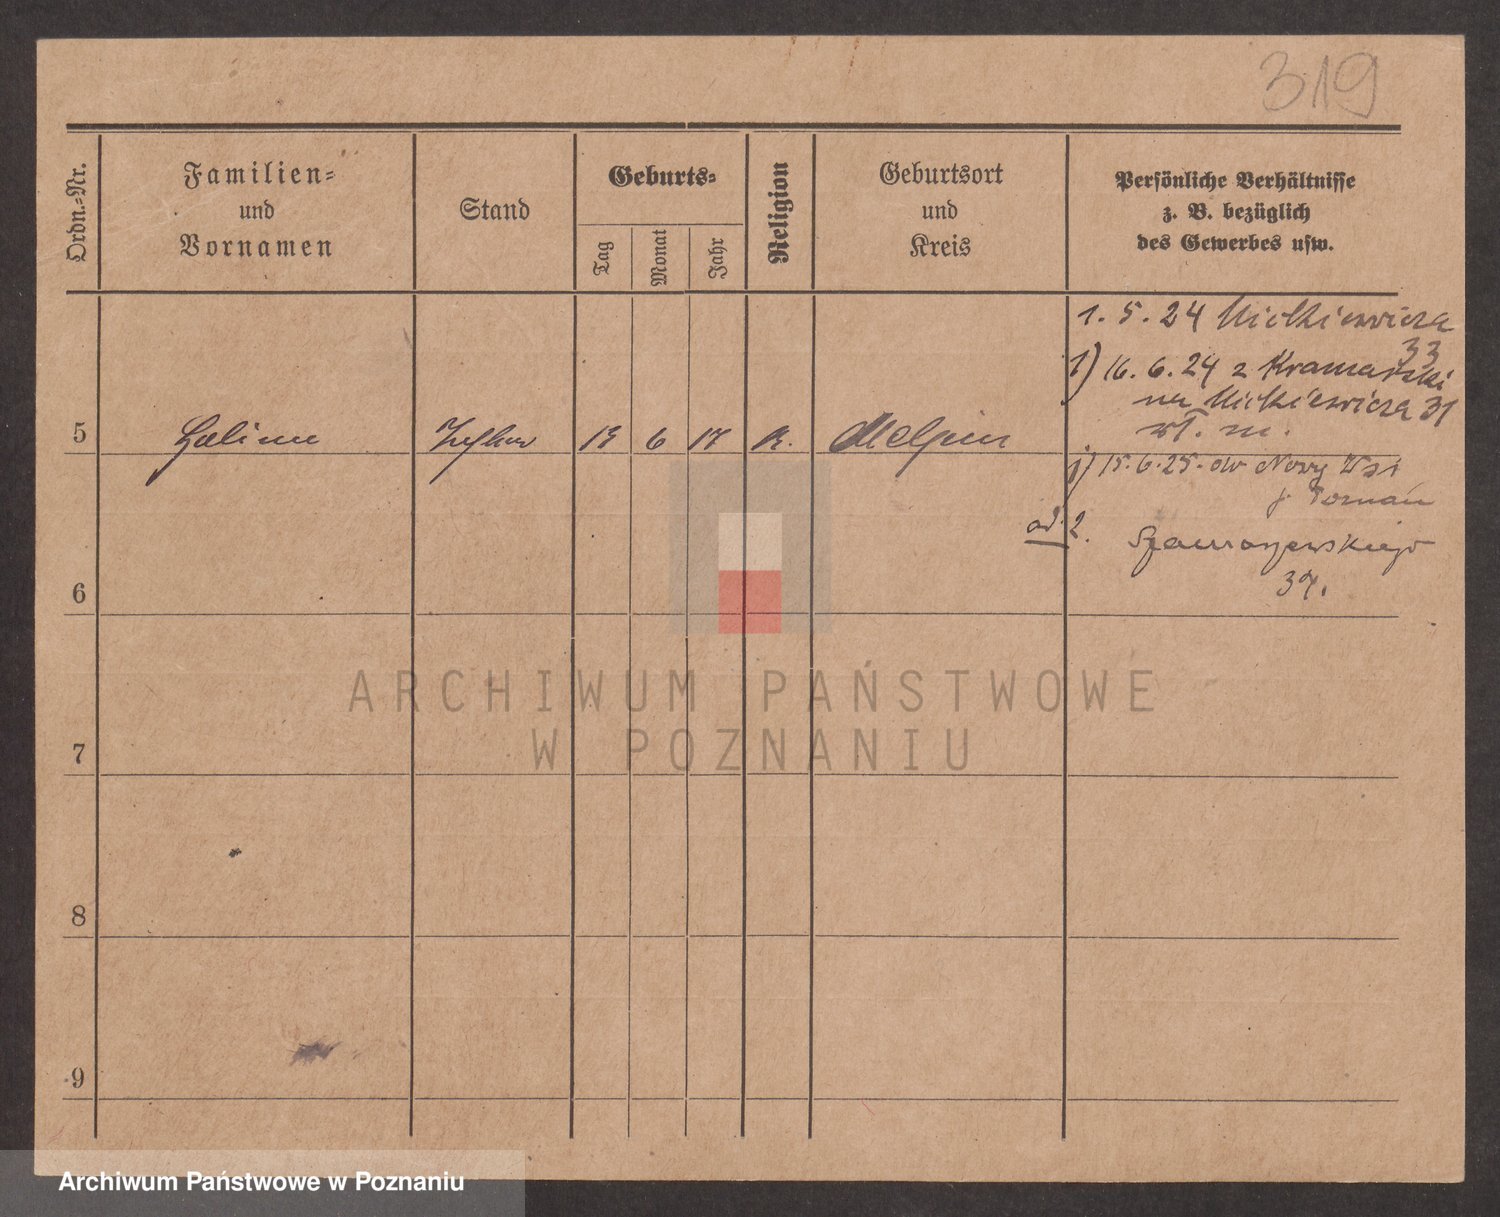 319
Ordn.-Nr.
Familien-
und
Vornamen
Stand
Geburts-
Tag
Monat
Jahr
Religion
Geburtsort
und
Kreis
Persönliche Verhältnisse
z. B. bezüglich
des Gewerbes usw.
1. 5. 24 Mickiewicza
33
1) 16. 6. 24 z Kramarski
na Mickiewicza 31
5 Halina 6 17 K.
j) 15. 6. 25. Nowy
Poznań
ad. 2. Szamarzewskiego
37.
6
7
8
9
ARCHIWUM PAŃSTWOWE
W POZNANIU
Archiwum Państwowe w Poznaniu